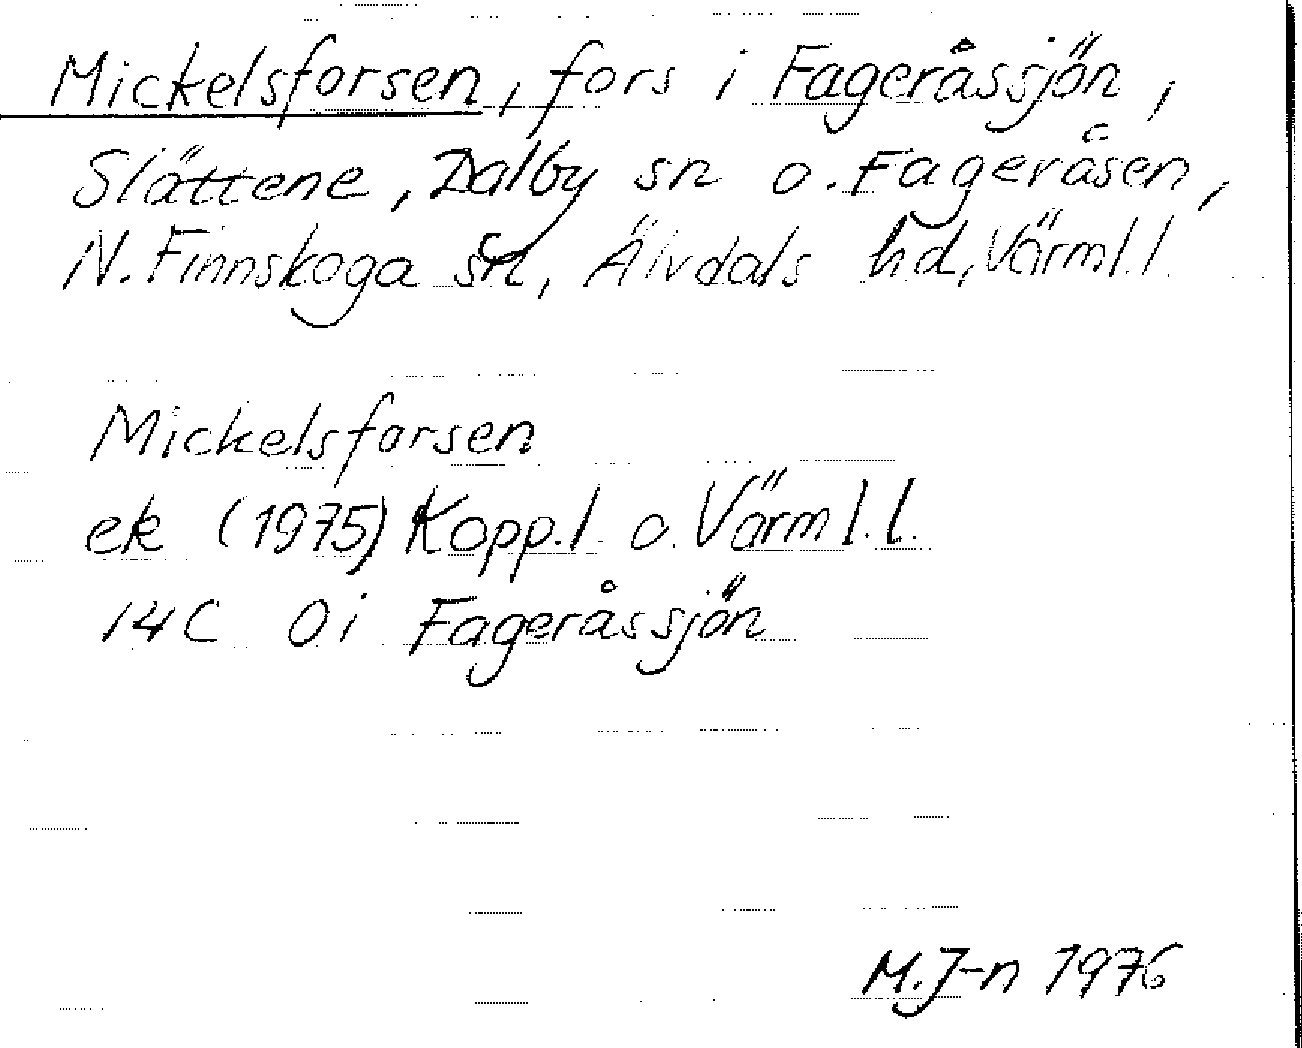 Mickelsforsen, fors i Fageråssjön,
Slättene, Dalby sn o. Fageråsen,
N. Finnskoga sn, Älvdals hd, Värml.l.
Mickelsforsen
ek (1975) Kopp.l. o. Värml.l.
14C 0i Fageråssjön
M.J-n 1976